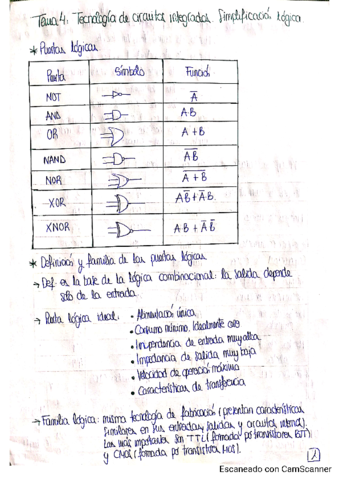 Tema 4. Tecnología de circuitos integrados. Simplificació lógica
* Puertas lógicas
Puerta Símbolo Función
NOT A̅
AND A·B
OR A + B
NAND A̅B̅
NOR A̅ + B̅
XOR A̅B + A̅B
XNOR AB + A̅B̅
* Definición y familia de las puertas lógicas
→ Def. es la base de la lógica combinacional: la salida depende
sólo de la entrada.
→ Puerta lógica ideal: • Alimentación única.
• Consumo mínimo. Idealmente cero
• Impedancia de entrada muy alta
• Impedancia de salida muy baja
• Velocidad de operación máxima
• Características de transferencia
→ Familia lógica: misma tecnología de fabricación (presentan características
similares en sus entradas, salidas y circuitos internos).
Las más importantes son TTL (formada por transistores BJT)
y CMOS (formada por transistores MOS).
1
Escaneado con CamScanner